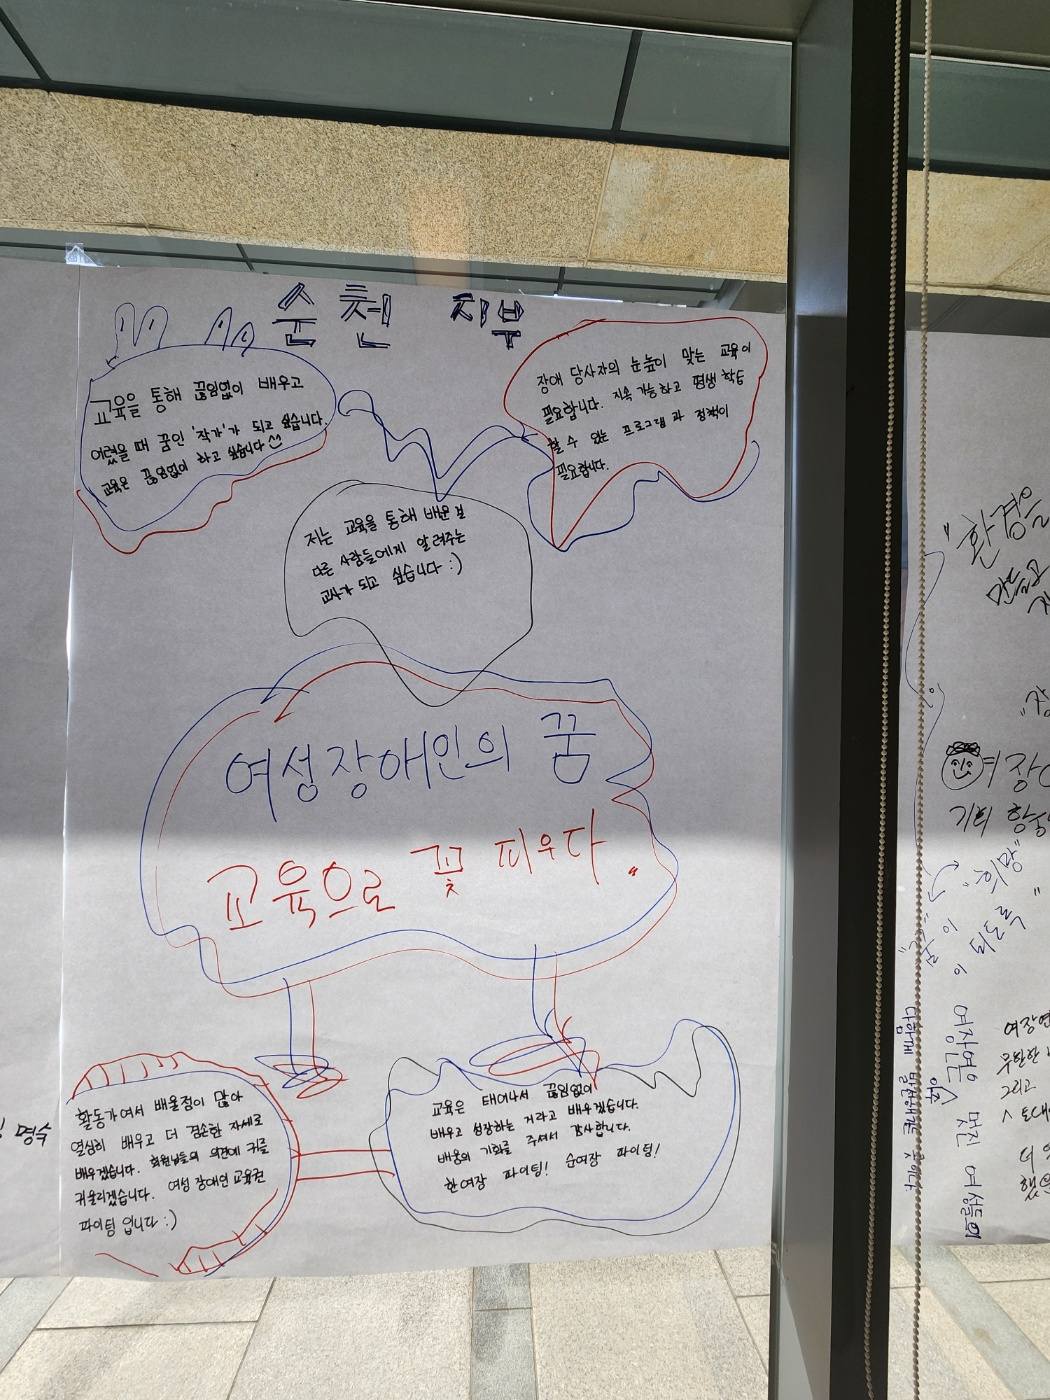 순천 지부
교육을 통해 끊임없이 배우고
어렸을 때 꿈인 '작가'가 되고 싶습니다.
교육은 끊임없이 하고 싶습니다
장애 당사자의 눈높이 맞는 교육이
필요합니다. 지속 가능하고 평생 학습
할 수 있는 프로그램과 정책이
필요합니다.
저는 교육을 통해 배운 걸
다른 사람들에게 알려주는
교사가 되고 싶습니다 :)
여성장애인의 꿈
교육으로 꽃 피우다.
활동가여서 배울점이 많아
열심히 배우고 더 겸손한 자세로
배우겠습니다. 회원님들의 의견에 귀를
귀울리겠습니다. 여성 장애인 교육권
파이팅 입니다 :)
교육은 태어나서 끊임없이
배우고 성장하는 거라고 배우겠습니다.
배움의 기회를 주셔서 감사합니다.
한여장 파이팅! 순여장 파이팅!
명숙
"환경을
만들고
여장
기회
여장연은 멋진 여성들의
다함께
여장연
그리고